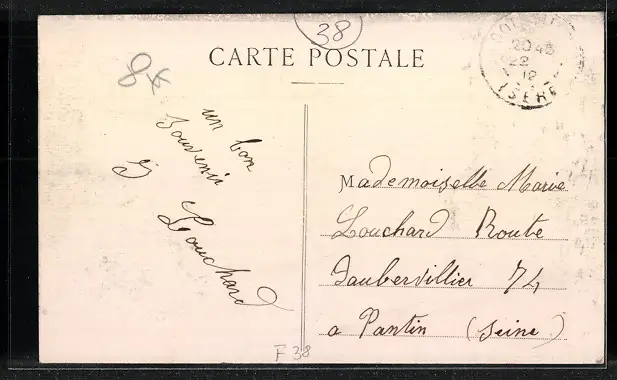 38
CARTE POSTALE
20 45
22
12
ISERE
8
un bon
Souvenir
Louchard
Mademoiselle Marie
Louchard Route
Daubervillier 74
a Pantin (Seine)
F 38